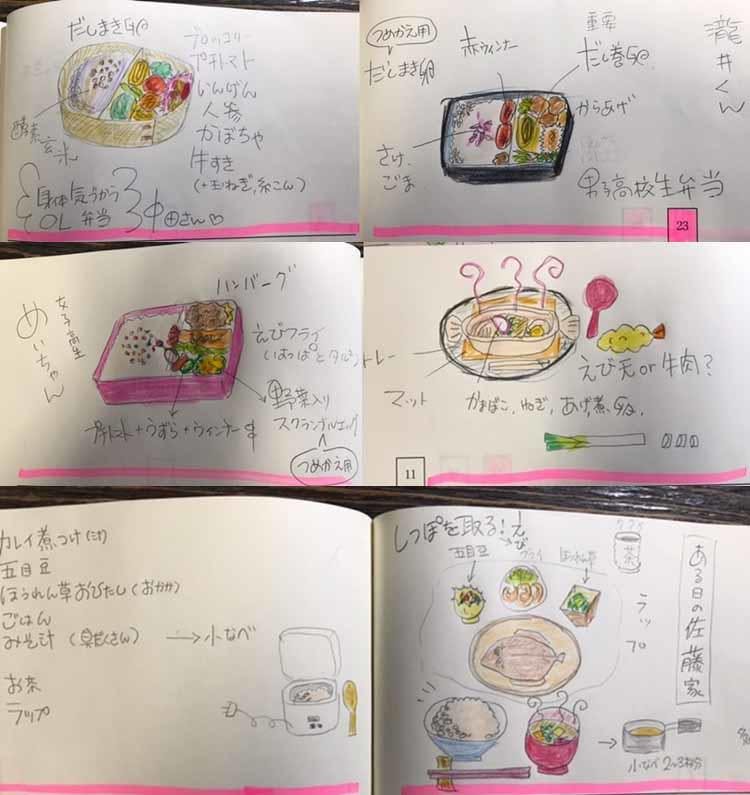 だしまき卵
ブロッコリー
プチトマト
いんげん
人参
かぼちゃ
牛すき
(+玉ねぎ,糸こん)
酵素
玄米
身体気づかう
OL 弁当
さん♡
つめかえ用
だしまき卵
赤ウィンナー
重要
だし巻卵
からあげ
さけ、
ごま
男子高校生弁当
瀧井くん
23
ハンバーグ
女子高生
めいちゃん
えびフライ
(はっぱとタルト
野菜入り
スクランブルエッグ
つめかえ用
プチトマト+うずら+ウィンナー
トレー
マット
えび天or牛肉?
かまぼこ、ねぎ、あげ煮、卵、
11
カレイ煮つけ
五目豆
ほうれん草おひたし(おかか)
ごはん
みそ汁 (具だくさん) → 小なべ
お茶
ラップ
しっぽを取る!
えび
フライ
五目豆
ほうれん草
茶
ラップ
ある日の佐藤家
小なべ 2~3杯分